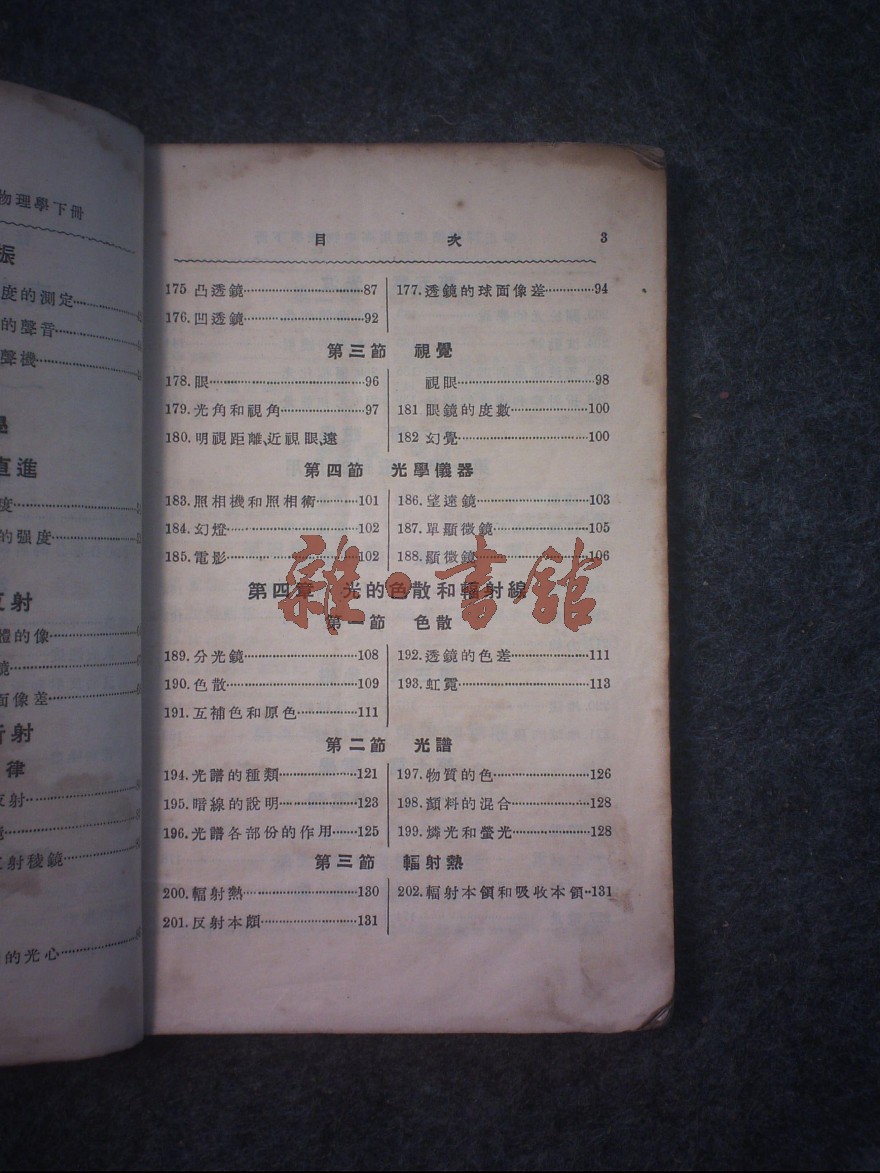 物理學下冊
振
度的測定
的聲音
聲機
直進
度
的强度
反射
體的像
鏡
面像差
折射
律
反射
反射稜鏡
的光心
目 次 3
175 凸透鏡 87
176. 凹透鏡 92
177. 透鏡的球面像差 94
第三節 視覺
178. 眼 96
179. 光角和視角 97
180. 明視距離、近視眼、遠
視眼 98
181 眼鏡的度數 100
182 幻覺 100
第四節 光學儀器
183. 照相機和照相術 101
184. 幻燈 102
185. 電影 102
186. 望遠鏡 103
187. 單顯微鏡 105
188. 顯微鏡 106
第四章 光的色散和輻射線
第一節 色散
189. 分光鏡 108
190. 色散 109
191. 互補色和原色 111
192. 透鏡的色差 111
193. 虹霓 113
第二節 光譜
194. 光譜的種類 121
195. 暗線的說明 123
196. 光譜各部份的作用 125
197. 物質的色 126
198. 顏料的混合 128
199. 燐光和螢光 128
第三節 輻射熱
200. 輻射熱 130
201. 反射本領 131
202. 輻射本領和吸收本領 131
雜·書館